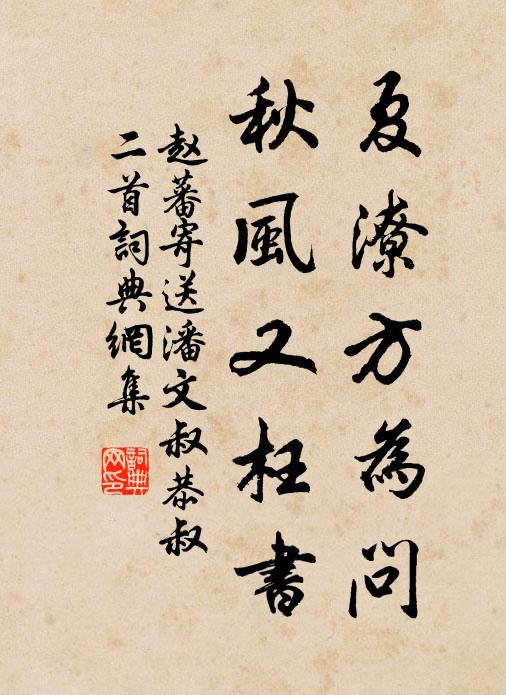 夏潦方為問
秋風又枉書
赵蕃寄送潘文叔恭叔
二首詞典網集
詞典
网印